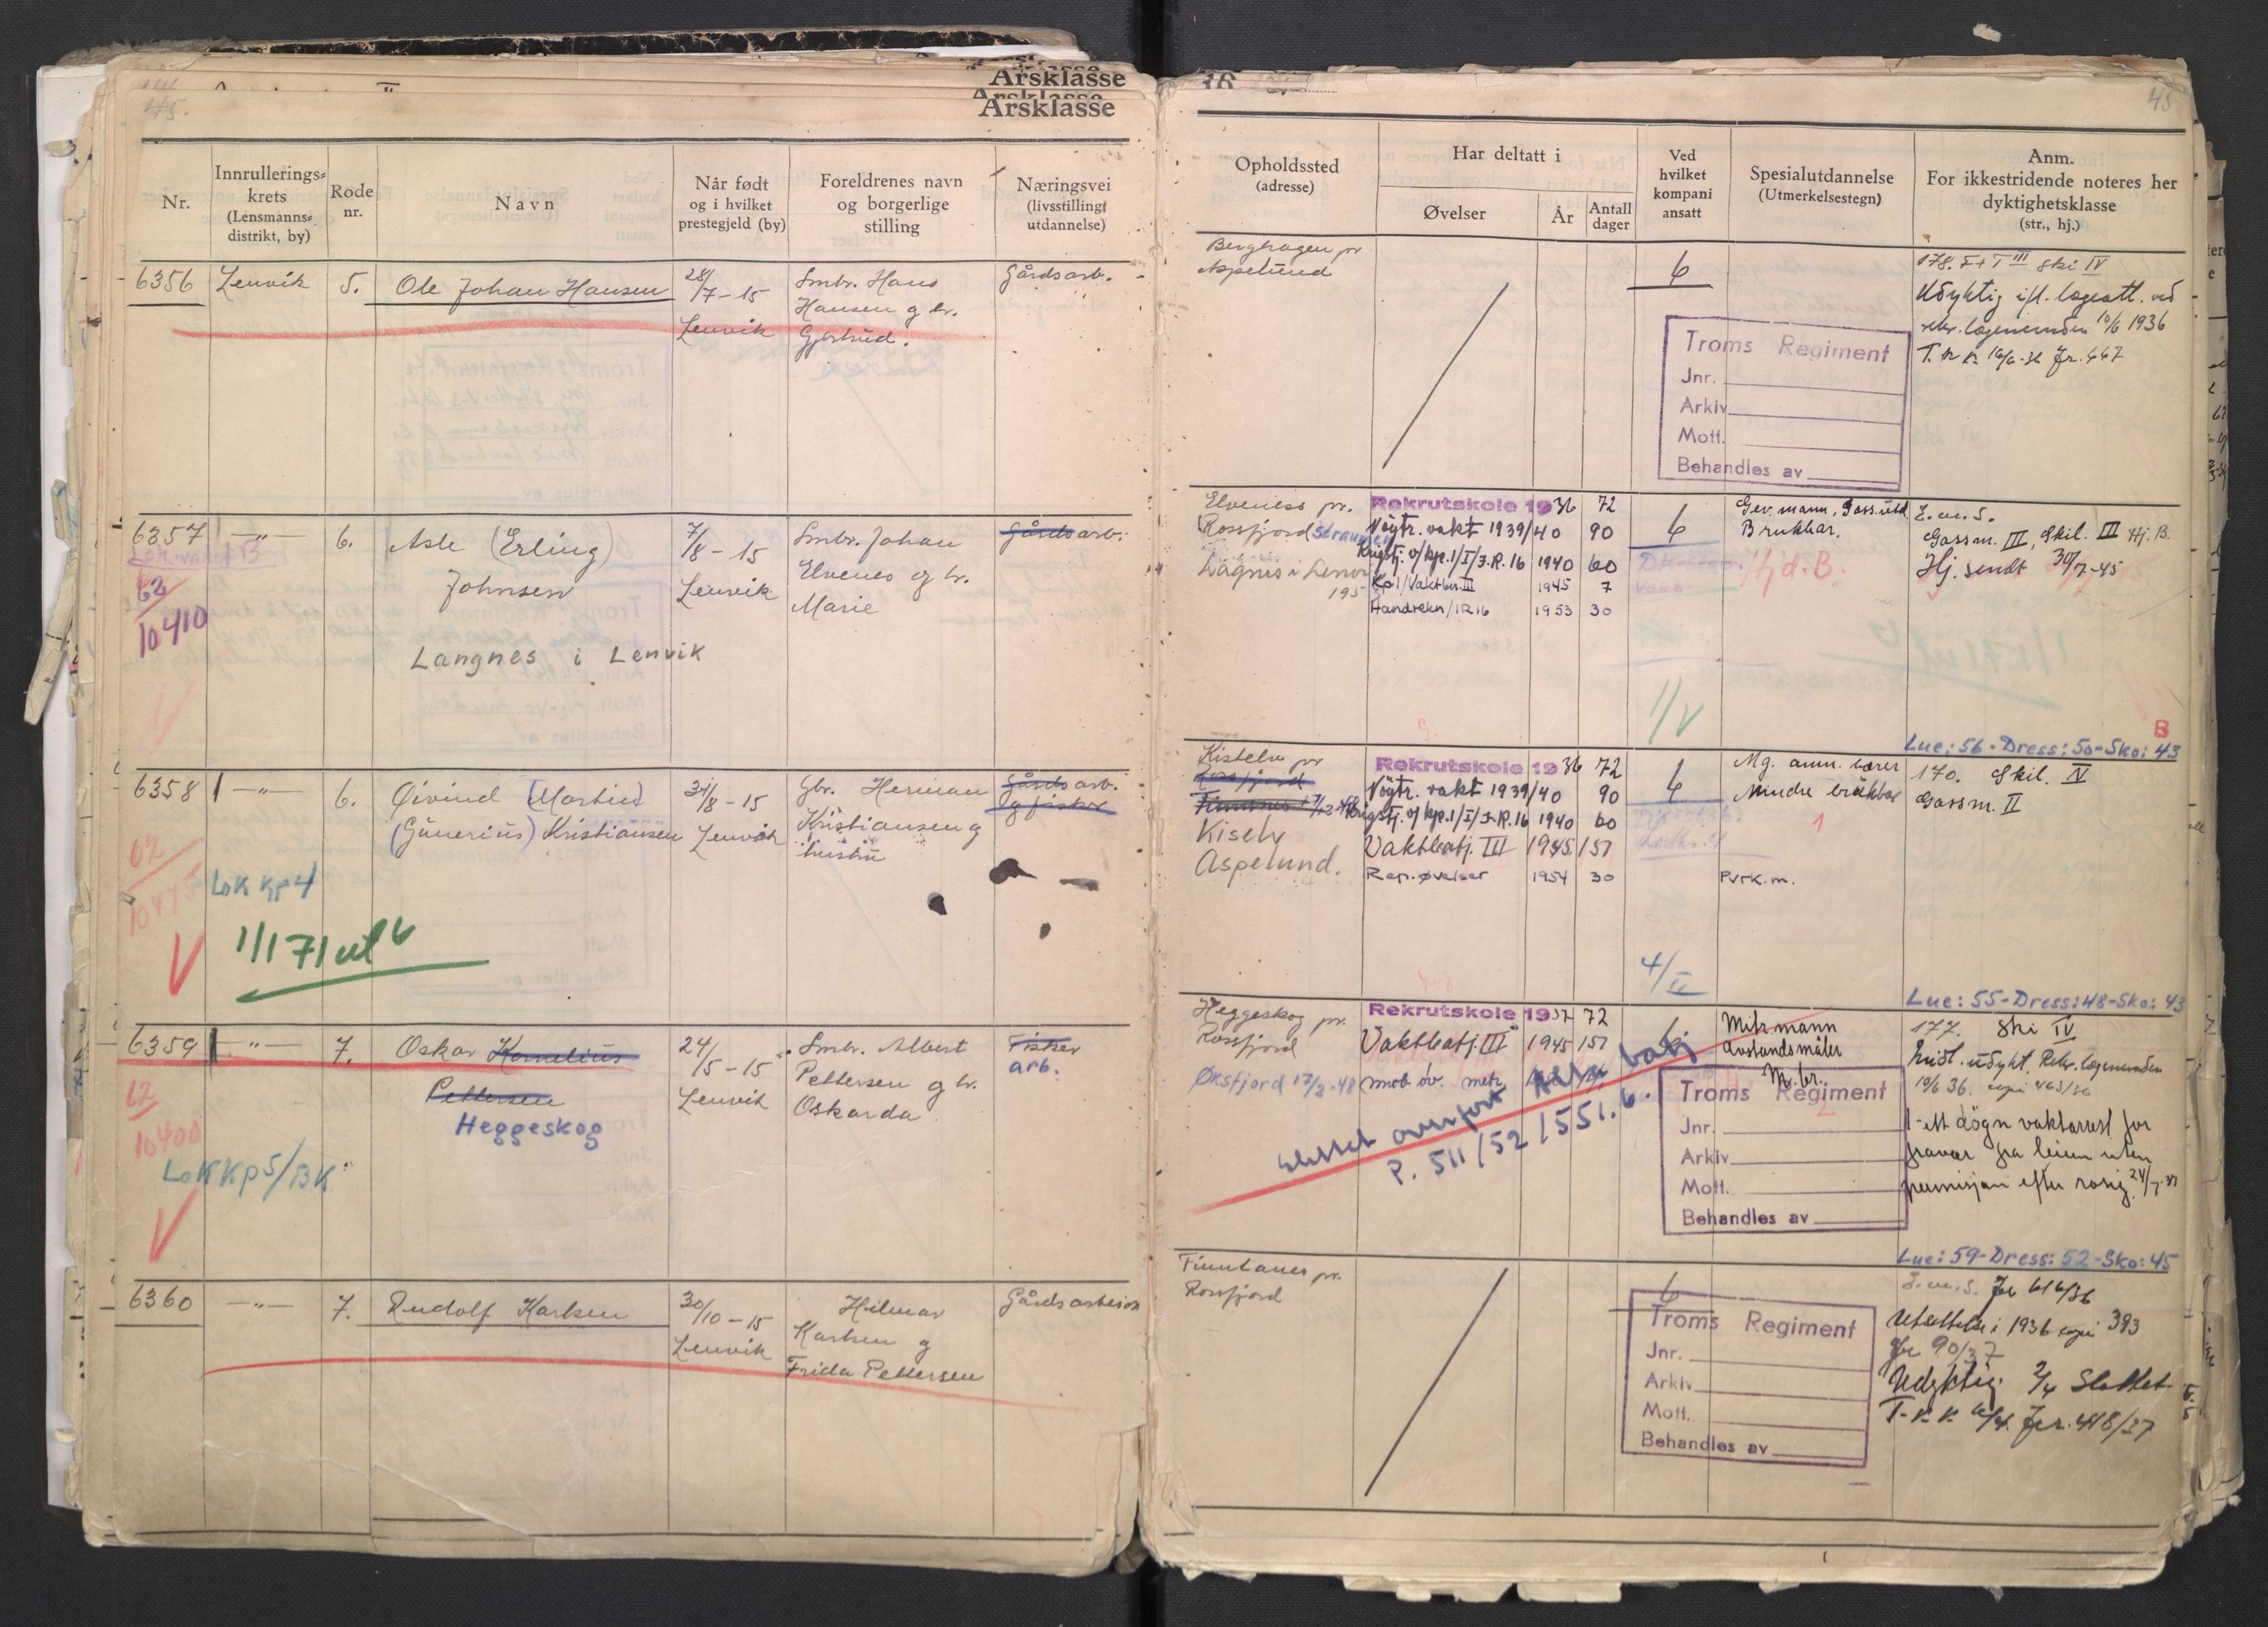 45.
Årsklasse
Årsklasse
45
Nr.
Innrullerings=
krets
(Lensmanns=
distrikt, by)
Rode
nr.
Navn
Når født
og i hvilket
prestegjeld (by)
Foreldrenes navn
og borgerlige
stilling
Næringsvei
(livsstilling,
utdannelse)
Opholdssted
(adresse)
Har deltatt i
Øvelser
År
Antall
dager
Ved
hvilket
kompani
ansatt
Spesialutdannelse
(Utmerkelsestegn)
Anm.
For ikkestridende noteres her
dyktighetsklasse
(str., hj.)
6356
Lenvik
5.
Ole Johan Hansen
28/7-15
Lenvik
Smbr. Hans
Hansen g hr.
Gjertrud.
Gårdsarb.
Aspelund
6
Troms Regiment
Jnr.
Arkiv
Mott.
Behandles av
178. Ski IV
Udyktig ifl. lægeatt. ved
rekr. lægenemnden 10/6 1936
6357
-"-
62
10410
6.
Asle (Erling)
Johnsen
Langnes i Lenvik
7/8-15
Lenvik
Smbr. Johan
Elvenes og hr.
Marie
Gårdsarb.
Elvenes pr.
Rossfjord Straumen
Rekrutskole 1936 72
Nøytr. vakt 1939/40 90
Krigstj. v/kp.1/I/J.R.16 1940 60
Kp.1/Vaktbn.III 1945 7
1953 30
6
Gev.mann, Gassutd.
Brukbar.
Hjd.B.
1/V
E.m.S.
Gassm. III, Skil. III Hj. B.
Hj. sendt 30/7-45
B
Lue: 56 - Dress: 50 - Sko: 43
6358
-"-
6.
Øivind (Martin)
(Gunerius) Kristiansen
62
LoK Kp 4
1/171 utl
31/8-15
Lenvik
Gbr. Herman
Kristiansen g
hustru
Gårdsarb.
og fisker
Kistelv pr
Rossfjord
Finnsnes
Kiselv
Aspelund.
Rekrutskole 1936 72
Nøytr. vakt 1939/40 90
Krigstj. v/kp.1/I/J.R.16 1940 60
Vaktbatj. III 1945 157
Rep.øvelser 1954 30
6
4/II
Mg. amn. bærer
Mindre brukbar
1
Pvrk.m.
170. Skil. IV
Gassm. II
Lue: 55 - Dress: 48 - Sko: 43
6359
-"-
7.
Oskar Kornelius
Pettersen
Heggeskog
62
10400
LoK Kp 5/BK
24/5-15
Lenvik
Smbr. Albert
Pettersen og hr.
Oskarda
Fisker
arb.
Heggeskog pr.
Rossfjord
Øksfjord 17/2-48
Rekrutskole 1937 72
Vaktbatj III 1945 157
mob øv.
Slettet overført
P. 511/52/551.6.
6
Mitr mann
Avstandsmåler
M. br.
Troms Regiment
Jnr.
Arkiv
Mott.
Behandles av
177. Ski IV
Midl. udykt. Rekr. lægenemnden
10/6 36.
1-ett døgn vaktarrest for
fravær fra leiren uten
permisjon efter rosig. 24/7-37
Lue: 59 - Dress: 52 - Sko: 45
6360
-"-
7.
Rudolf Karlsen
30/10-15
Lenvik
Hilmar
Karlsen g
Frida Pettersen
Gårdsarbeider
pr.
Rossfjord
6
Troms Regiment
Jnr.
Arkiv
Mott.
Behandles av
E.m.S. Jr 616/36
Utsettelse i 1936 kopi 393
Jr 90/37
Udyktig 2/4 Slettet.
418/37